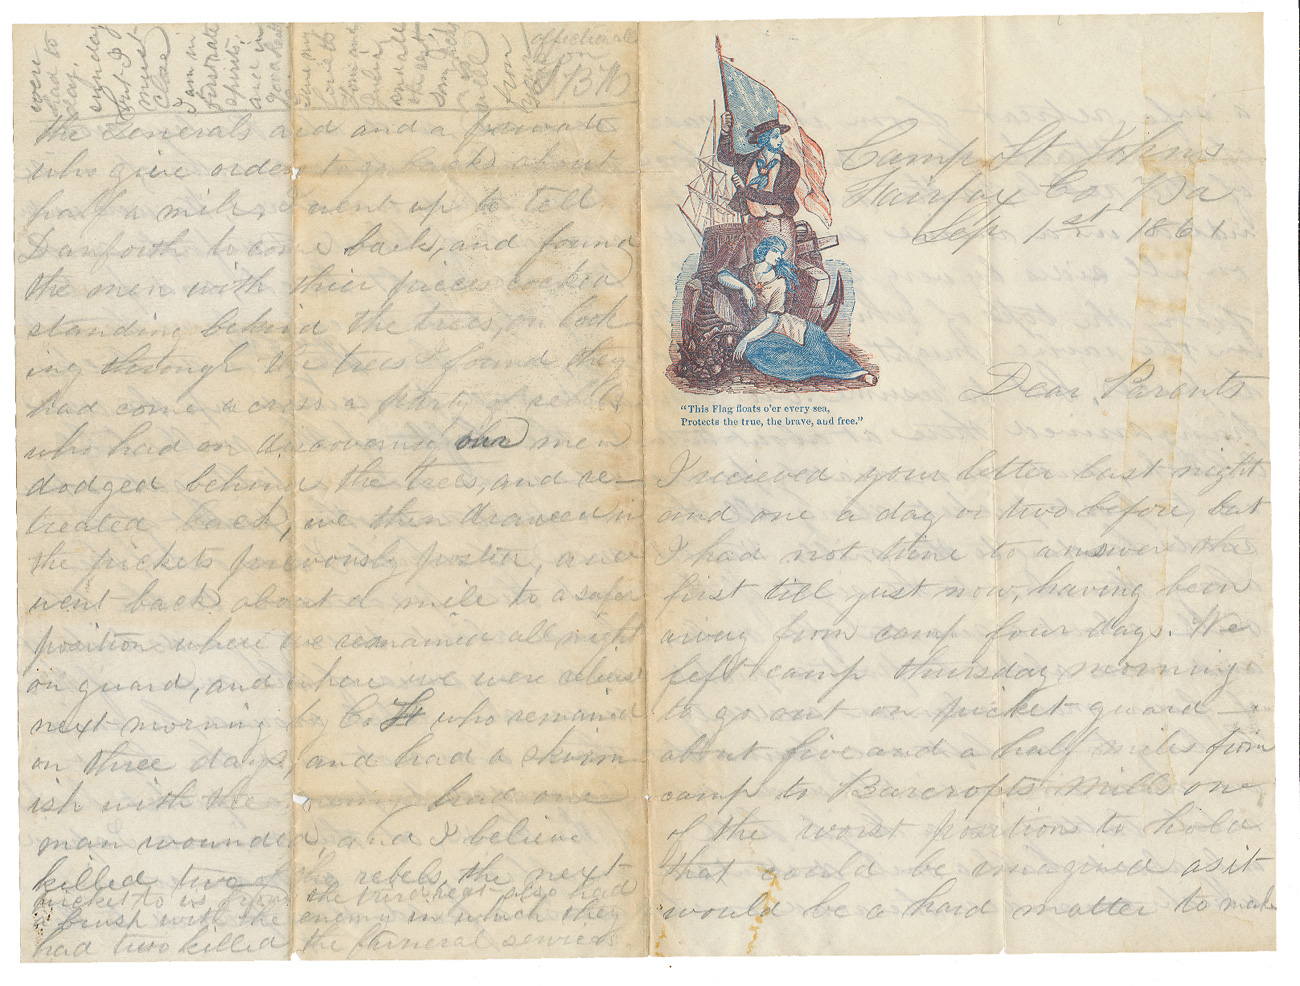 Camp St Johns
Fairfax Co Va
Sep 1st 1861
Dear Parents
"This Flag floats o'er every sea,
Protects the true, the brave, and free."
I recieved your letter last night
and one a day or two before, but
I had not time to answer the
first till just now, having been
away from camp four days. We
left camp thursday morning
to go out on picket guard —
about five and a half miles from
camp to Barcrofts Mills one
of the worst position to hold
that could be imagined as it
would be a hard matter to make
the Generals aid and a private
who give orders to go back about
half a mile, I went up to tell
Danforth to come back, and found
the men with thier pieces cocked
standing behind the trees, on look
ing through the trees I found they
had come across a party of rebels
who had on discovering our men
dodged behind the trees, and re-
treated back, we then drawed in
the pickets previously posted, and
went back about a mile to a safer
position where we remained all night
on guard, and where we were relieved
next morning by Co H who remained
on three days, and had a skirm
ish with the enemy had one
man wounded, and I believe
killed two of the rebels, the next
picket to us from the third regt also had
a brush with the enemy in which they
had two killed the funeral services
were
had to
day.
sunday
but I
must
close
I am in
firstrate
spirits,
and in
good health
Give my
love to
and all
the rest,
from
your
affectionate
son